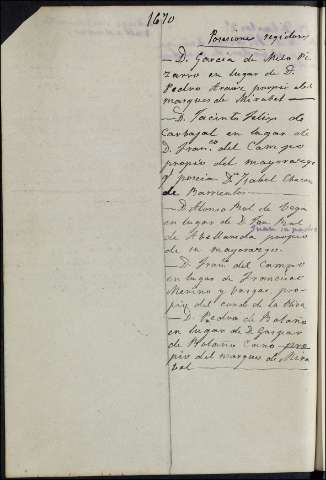 1670
Posesiones regidores
— D. Garcia de Meso Pi
zarro en lugar de D.
Pedro propio del
marques de Mirabel —
— D. Jacinto Felix de
Carbajal en lugar de
D. Fran.co del Campo
propio del mayorazgo
q poseia D.a Isabel Chacon
de Barrientos —
— D. Alonso Bal de Vega
en lugar de D. Juan Bal
Juan su padre
de Abellaneda propio
de su mayorazgo.
— D. Fran.co del Campo
en lugar de Francisco
Merino y Vargas pro-
pio del conde de la Oliva
— D. Pedro de Bolaño
en lugar de D. Gaspar
de Bolaño Cano pro
pio del marques de Mira
bel —